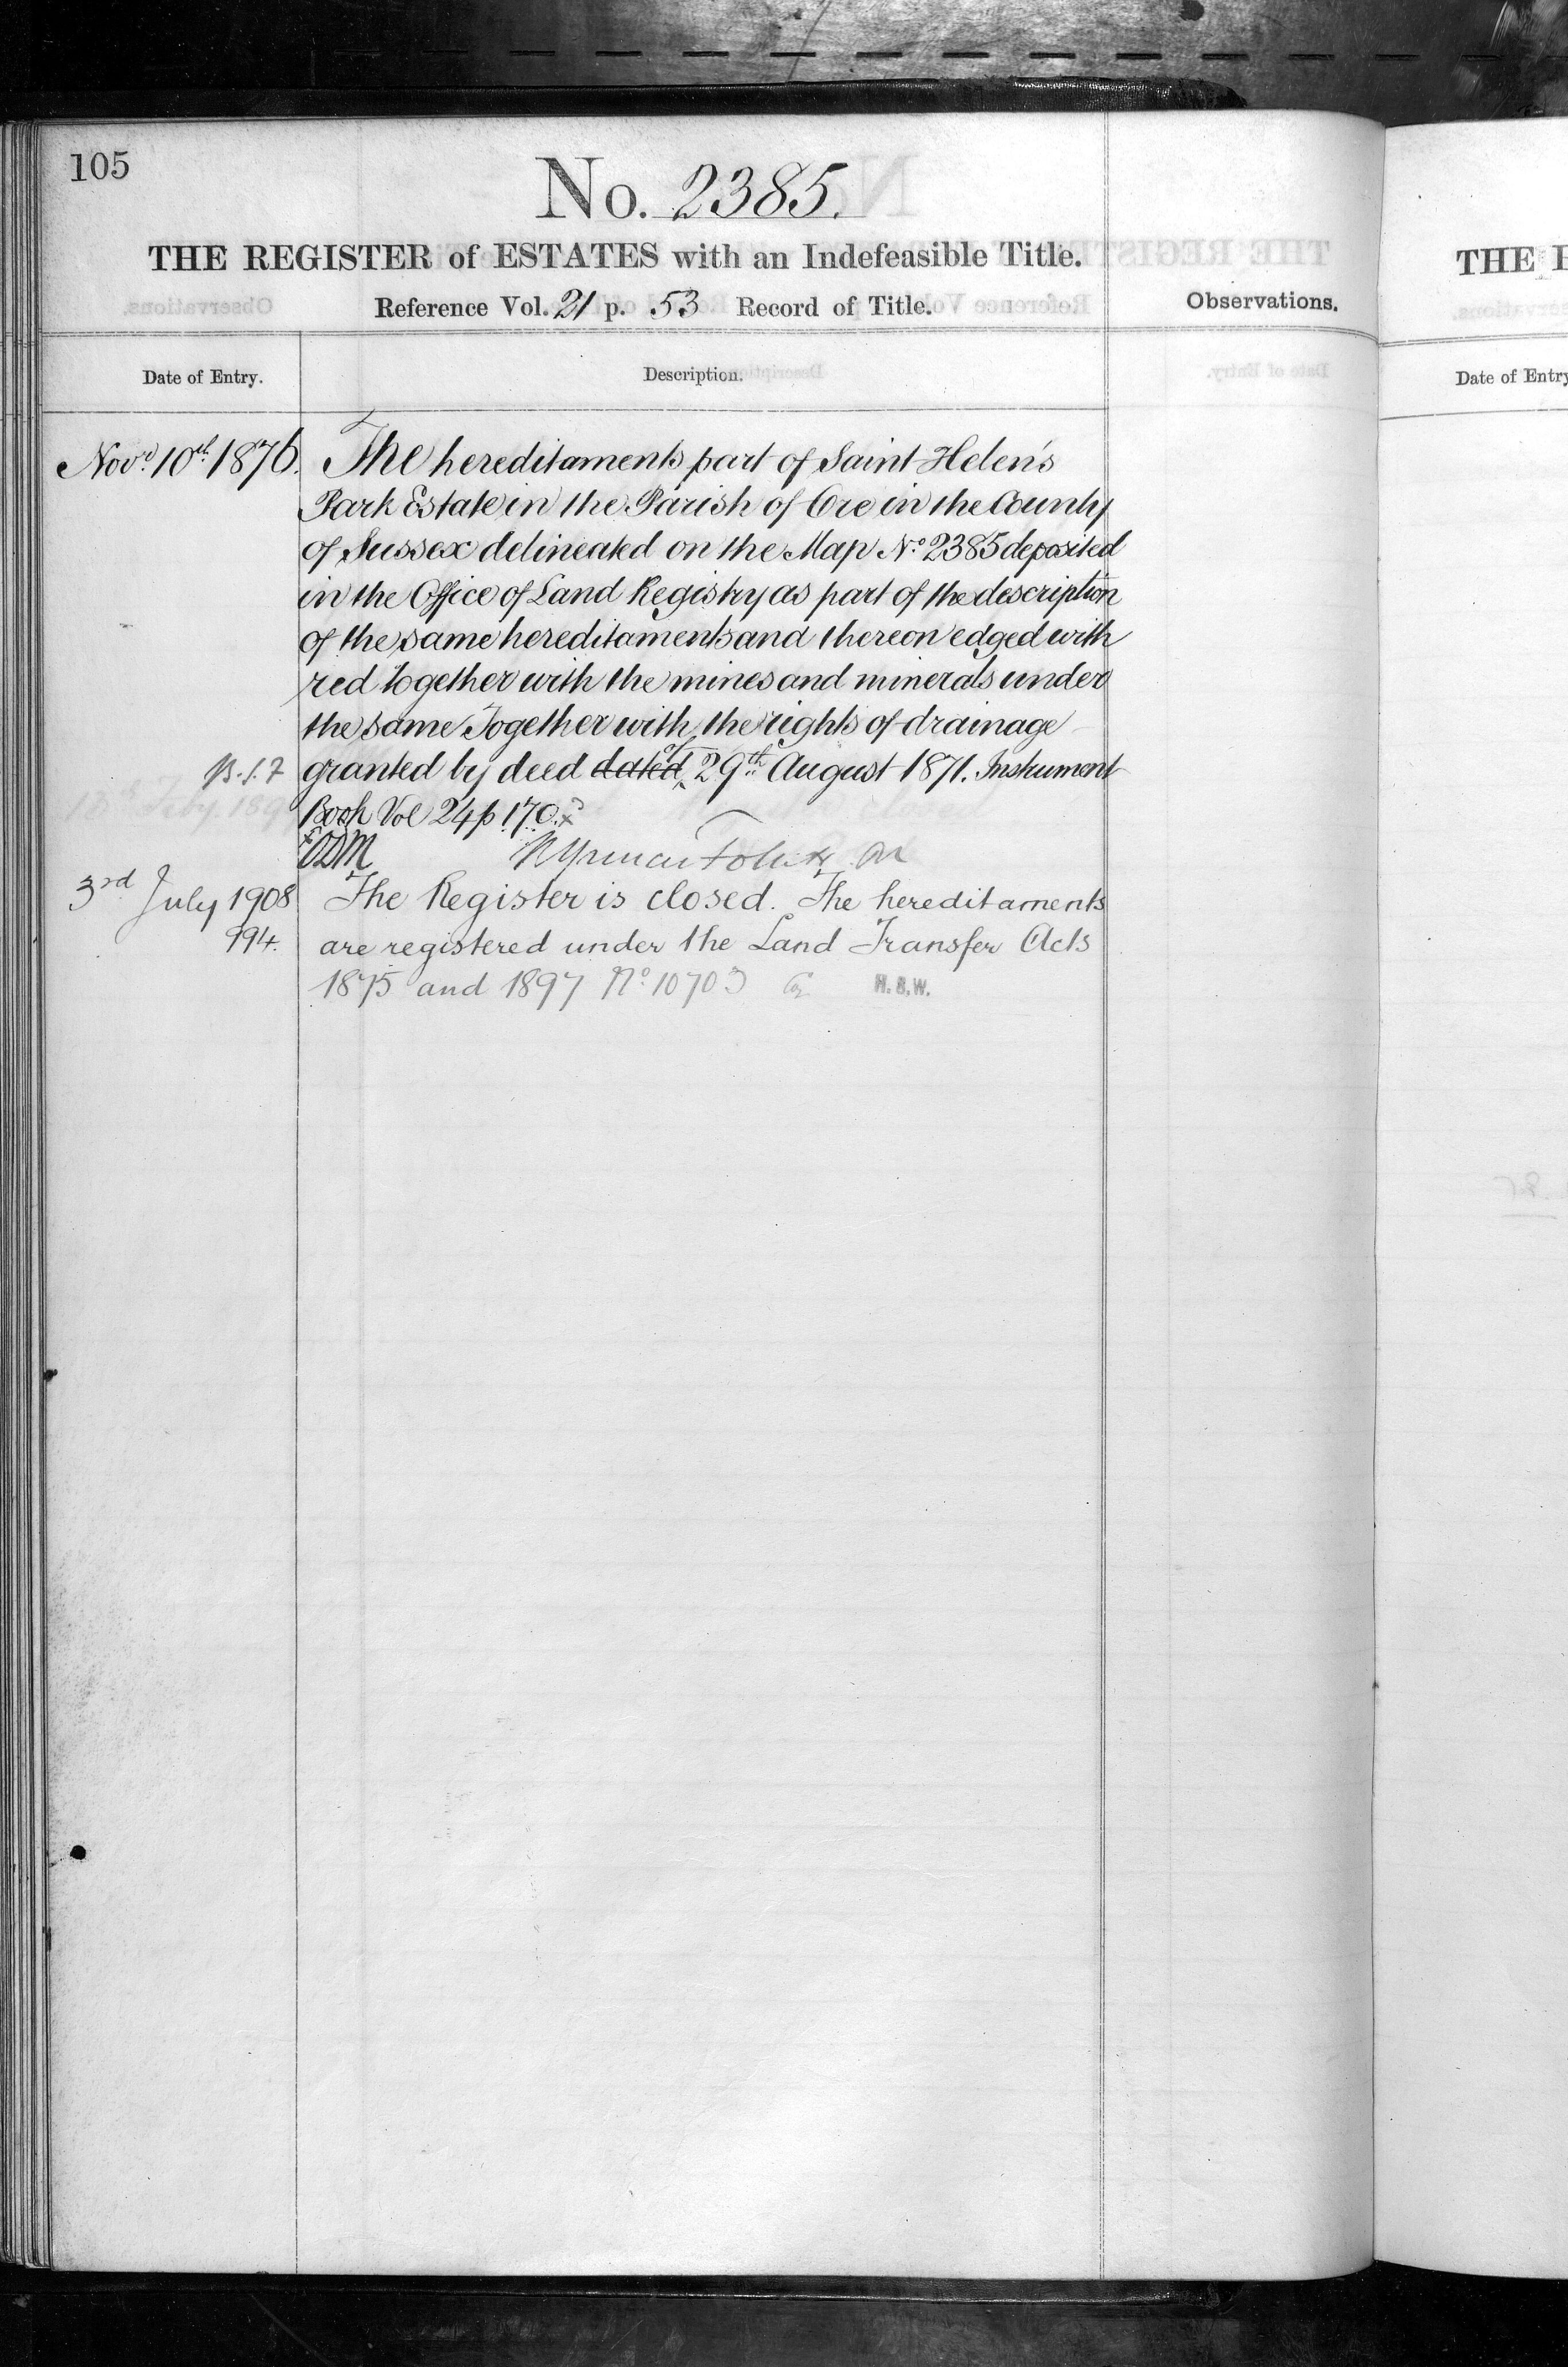 105
No. 2385.
THE REGISTER of ESTATES with an Indefeasible Title.
Reference Vol. 21 p. 53 Record of Title.
Observations.
Date of Entry.
Description.
Novr. 10th 1876. The hereditaments part of Saint Helen's
Park Estate in the Parish of Ore in the County
of Sussex delineated on the Map No. 2385 deposited
in the Office of Land Registry as part of the description
of the same hereditaments and thereon edged with
red together with the mines and minerals under
the same Together with the rights of drainage
granted by deed dated of 29th August 1871. Instrument
Book Vol 24 p 170. x
3rd July 1908 The Register is closed. The hereditaments
994. are registered under the Land Transfer Acts
1875 and 1897 No. 10703 H.S.W.
THE
Date of Entry